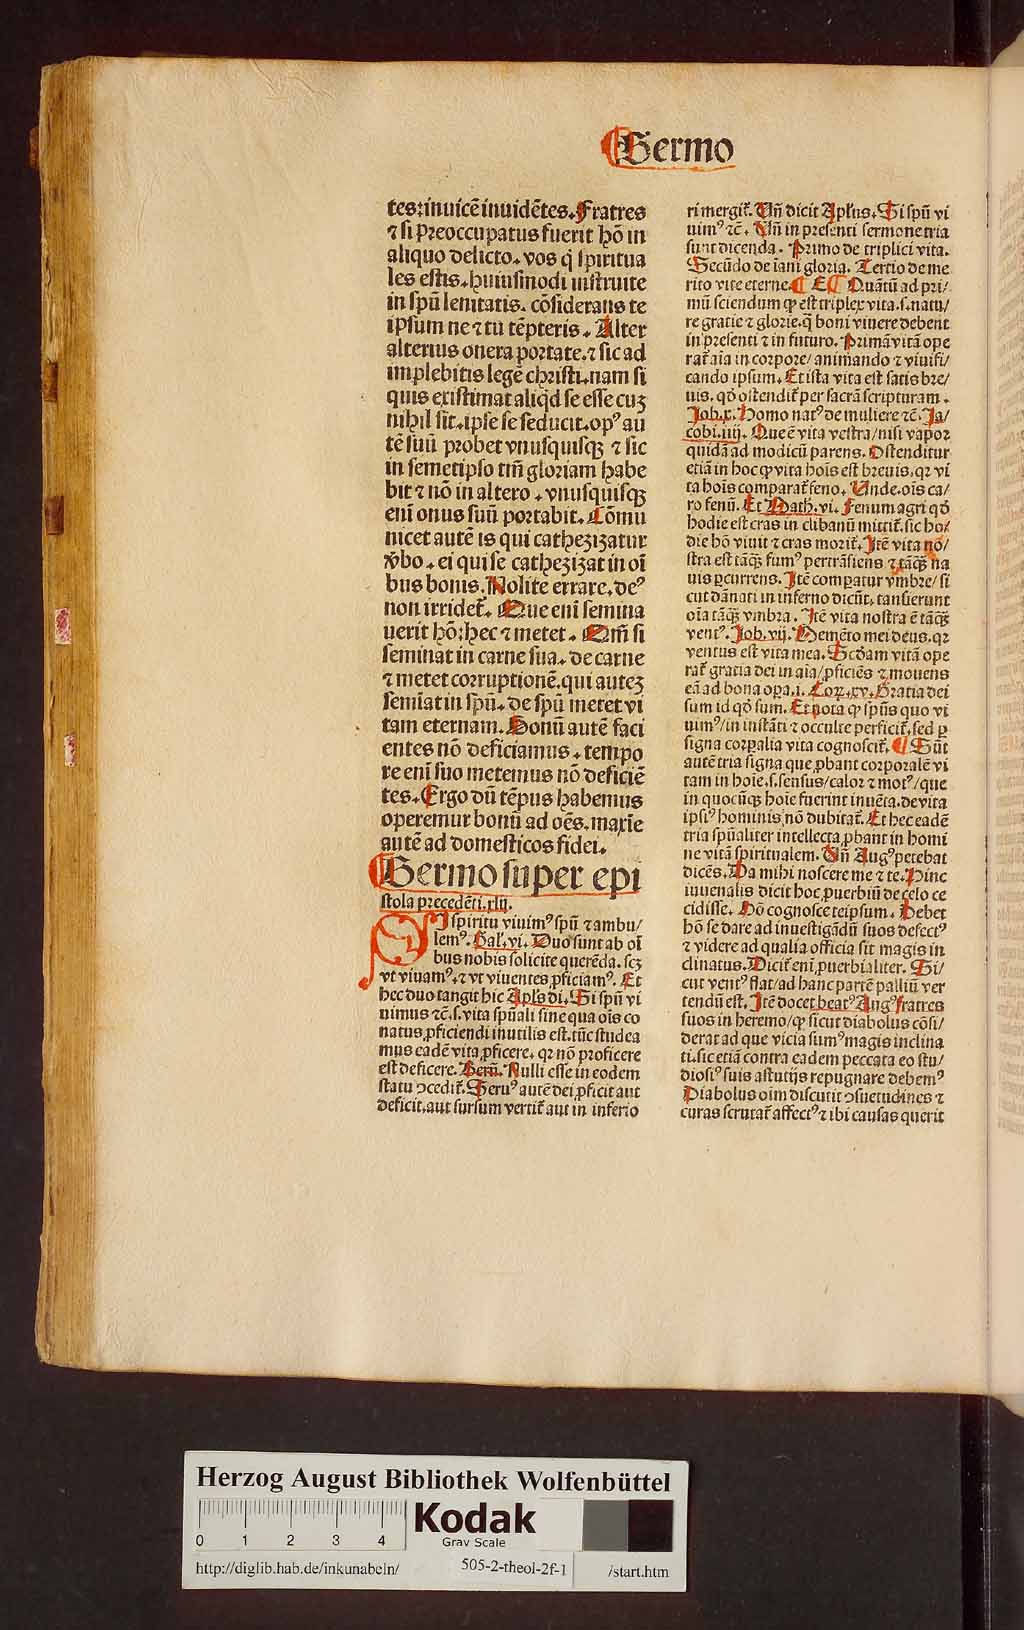 Sermo
tes: inuicē inuidētes. Fratres
⁊ si preoccupatus fuerit hō in
aliquo delicto. vos q̄ spiritua
les estis. huiusmodi instruite
in spū lenitatis. cōsiderans te
ipsum ne ⁊ tu tēpteris. Alter
alterius onera portate. ⁊ sic ad
implebitis legē christi. nam si
quis existimat aliqd̄ se esse cuʒ
nihil sit. ipse se seducit. opꝰ au
tē suū probet vnusquisqꝫ ⁊ sic
in semetipso tm̄ gloriam habe
bit ⁊ nō in altero. vnusquisqꝫ
enī onus suū portabit. Cōmu
nicet autē is qui cathezizatur
v̄bo. ei qui se cathezizat in oī
bus bonis. Nolite errare. deꝰ
non irridet̄. Que enī semina
uerit hō: hec ⁊ metet. Qm̄ si
seminat in carne sua. de carne
⁊ metet corruptionē. qui auteʒ
semīat in spū. de spū metet vi
tam eternam. Bonū autē faci
entes nō deficiamus. tempo
re enī suo metemus nō deficiē
tes. Ergo dū tēpus habemus
operemur bonū ad oēs. maxīe
autē ad domesticos fidei.
Sermo super epi
stola precedēti. xlij.
SI spiritu viuimꝰ spū ⁊ ambu/
lemꝰ. Gal̄. vi. Duo sunt ab oī
bus nobis solicite querēda. scʒ
vt viuamꝰ. ⁊ vt viuentes ꝓficiamꝰ. Et
hec duo tangit hic Apl̄s di. Si spū vi
uimus ⁊c̄. s. vita spūali sine qua oīs co
natus ꝓficiendi inutilis est. tūc studea
mus eadē vita ꝓficere. qꝛ nō proficere
est deficere. Bern̄. Nulli esse in eodem
statu ↄcedit̄. Seruꝰ autē dei ꝓficit aut
deficit. aut sursum vertit̄ aut in inferio
ri mergit̄. Vn̄ dicit Apl̄us. Si spū vi
uimꝰ ⁊c̄. Vn̄ in presenti sermone tria
sunt dicenda. Primo de triplici vita.
Secūdo de īani gloria. Tertio de me
rito vite eterne. Quātū ad pri/
mū sciendum ꝙ est triplex vita. s. natu/
re gratie ⁊ glorie. q̄ boni viuere debent
in presenti ⁊ in futuro. Primā vitā ope
rat̄ aīa in corpore/ animando ⁊ viuifi/
cando ipsum. Et ista vita est satis bre/
uis. qd̄ ostendit̄ per sacrā scripturam.
Job. x. Homo natꝰ de muliere ⁊c̄. Ja/
cobi. iiij. Que ē vita vestra/ nisi vapor
quidā ad modicū parens. Ostenditur
etiā in hoc ꝙ vita hoīs est breuis. qꝛ vi
ta hoīs comparat̄ feno. Vnde. oīs ca/
ro fenū. Et Math. vi. Fenum agri qd̄
hodie est cras in clibanū mittit̄. sic ho/
die hō viuit ⁊ cras morit̄. Itē vita nō/
stra est tāqꝫ fumꝰ pertrāsiens ⁊ tāqꝫ na
uis ꝑcurrens. Itē comꝑatur vmbre/ si
cut dānati in inferno dicūt. transierunt
oīa tāqꝫ vmbra. Itē vita nostra ē tāqꝫ
ventꝰ. Job. vij. Memēto mei deus. qꝛ
ventus est vita mea. Scd̄am vitā ope
rat̄ gratia dei in aīa/ ꝓficiēs ⁊ mouens
eā ad bona oꝑa. i. Coꝝ. xv. Gratia dei
sum id qd̄ sum. Et nota ꝙ spūs quo vi
uimꝰ/ in instāti ⁊ occulte perficit̄. sed ꝑ
signa corꝑalia vita cognoscit̄. Sūt
autē tria signa que ꝓbant corporalē vi
tam in hoīe. s. sensus/ calor ⁊ motꝰ/ que
in quocūqꝫ hoīe fuerint inuēta. de vita
ipsiꝰ hominis nō dubitat̄. Et hec eadē
tria spūaliter intellecta ꝓbant in homi
ne vitā spiritualem. Vn̄ Augꝰ petebat
dicēs. Da mihi noscere me ⁊ te. Hinc
iuuenalis dicit hoc ꝓuerbiū de celo ce
cidisse. Hō cognosce teipsum. Debet
hō se dare ad inuestigādū suos defectꝰ
⁊ videre ad qualia officia sit magis in
clinatus. Dicit̄ enī ꝓuerbialiter. Si/
cut ventꝰ flat/ ad hanc partē palliū ver
tendū est. Itē docet beatꝰ Augꝰ fratres
suos in heremo/ ꝙ sicut diabolus cōsi/
derat ad que vicia sumꝰ magis inclina
ti. sic etiā contra eadem peccata eo stu/
diosiꝰ suis astutijs repugnare debemꝰ
Diabolus oīm discutit ↄsuetudines ⁊
curas scrutat̄ affectꝰ ⁊ ibi causas querit
Herzog August Bibliothek Wolfenbüttel
0 1 2 3 4
Kodak
Gray Scale
http://diglib.hab.de/inkunabeln/ 505-2-theol-2f-1 /start.htm